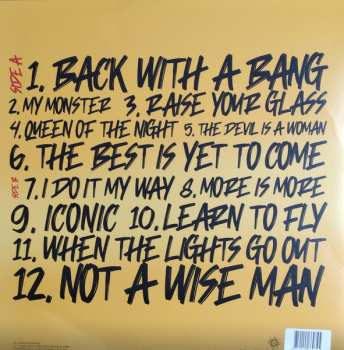 SIDE A
1. BACK WITH A BANG
2. MY MONSTER 3. RAISE YOUR GLASS
4. QUEEN OF THE NIGHT 5. THE DEVIL IS A WOMAN
6. THE BEST IS YET TO COME
SIDE B
7. I DO IT MY WAY 8. MORE IS MORE
9. ICONIC 10. LEARN TO FLY
11. WHEN THE LIGHTS GO OUT
12. NOT A WISE MAN